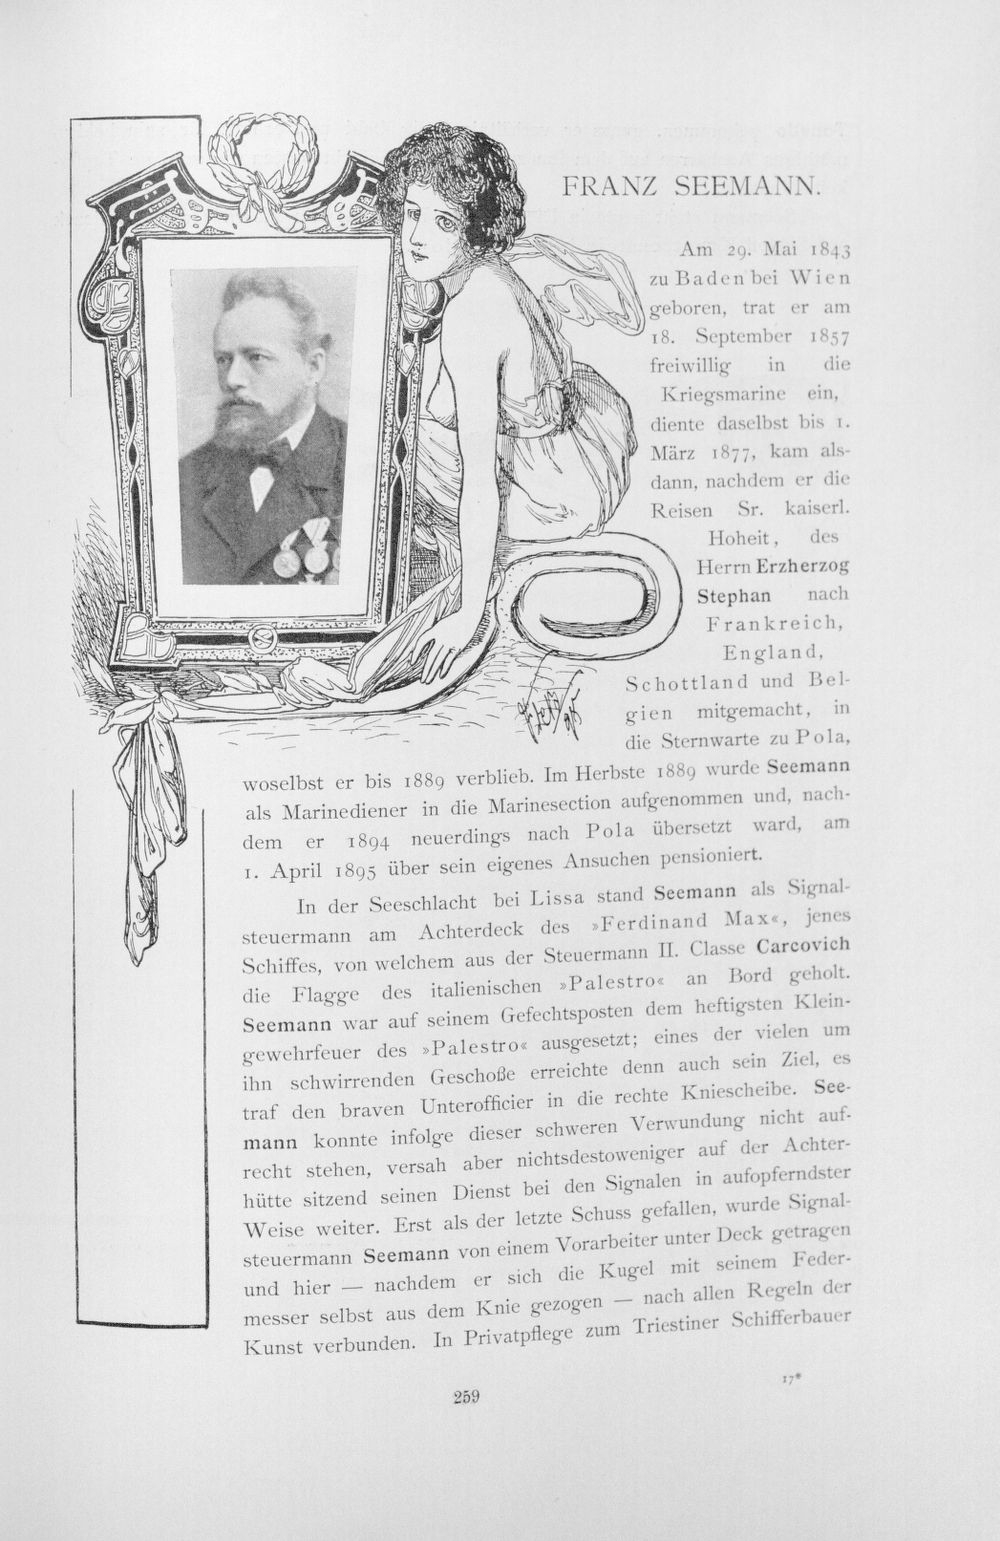 FRANZ SEEMANN.
Am 29. Mai 1843
zu Baden bei Wien
geboren, trat er am
18. September 1857
freiwillig in die
Kriegsmarine ein,
diente daselbst bis 1.
März 1877, kam als-
dann, nachdem er die
Reisen Sr. kaiserl.
Hoheit, des
Herrn Erzherzog
Stephan nach
Frankreich,
England,
Schottland und Bel-
gien mitgemacht, in
die Sternwarte zu Pola,
woselbst er bis 1889 verblieb. Im Herbste 1889 wurde Seemann
als Marinediener in die Marinesection aufgenommen und, nach-
dem er 1894 neuerdings nach Pola übersetzt ward, am
1. April 1895 über sein eigenes Ansuchen pensioniert.
In der Seeschlacht bei Lissa stand Seemann als Signal-
steuermann am Achterdeck des »Ferdinand Max«, jenes
Schiffes, von welchem aus der Steuermann II. Classe Carcovich
die Flagge des italienischen »Palestro« an Bord geholt.
Seemann war auf seinem Gefechtsposten dem heftigsten Klein-
gewehrfeuer des »Palestro« ausgesetzt; eines der vielen um
ihn schwirrenden Geschoße erreichte denn auch sein Ziel, es
traf den braven Unterofficier in die rechte Kniescheibe. See-
mann konnte infolge dieser schweren Verwundung nicht auf-
recht stehen, versah aber nichtsdestoweniger auf der Achter-
hütte sitzend seinen Dienst bei den Signalen in aufopferndster
Weise weiter. Erst als der letzte Schuss gefallen, wurde Signal-
steuermann Seemann von einem Vorarbeiter unter Deck getragen
und hier — nachdem er sich die Kugel mit seinem Feder-
messer selbst aus dem Knie gezogen — nach allen Regeln der
Kunst verbunden. In Privatpflege zum Triestiner Schifferbauer
17*
259